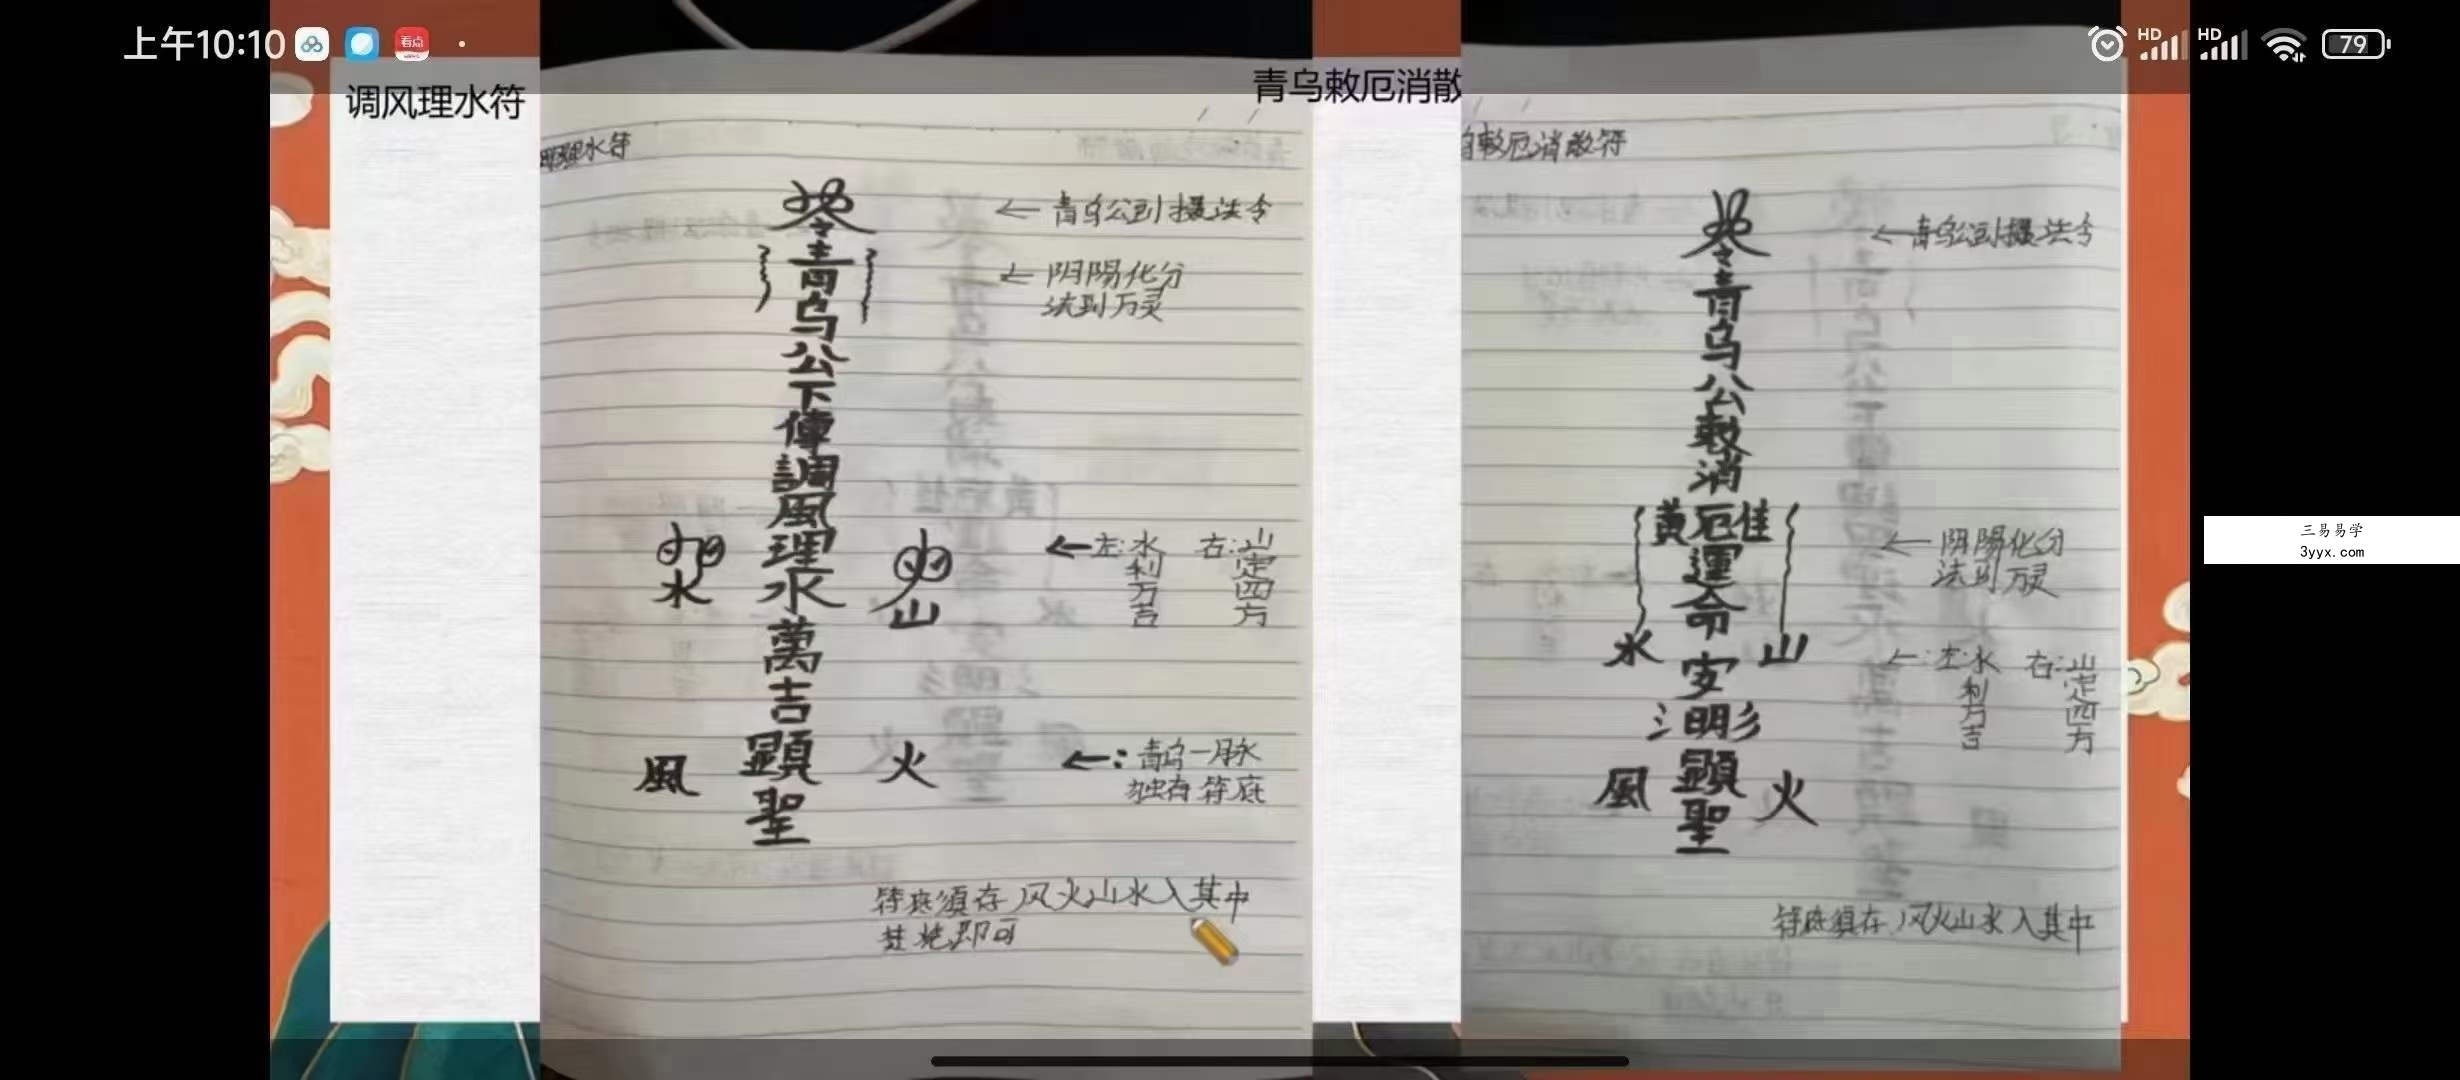 上午10:10
看点
HD
HD
79
调风理水符
理水符
青乌公下傳調風理水萬吉顯聖
水
山
風
火
←青乌公到摄法令
←阴陽化分
法到万灵
←左:水利万吉 右:山定四方
←:青乌一脉
独存符底
符底須存风火山水入其中
焚烧即可
青乌敕厄消散
敕厄消散符
青乌公敕消
黄厄佳
運命
水 安 山
氵明彡
風 顯 火
聖
←青乌公到摄法令
←阴陽化分
法到万灵
←:左:水利万吉 右:山定四方
符底須存风火山水入其中
三易易学
3yyx.com